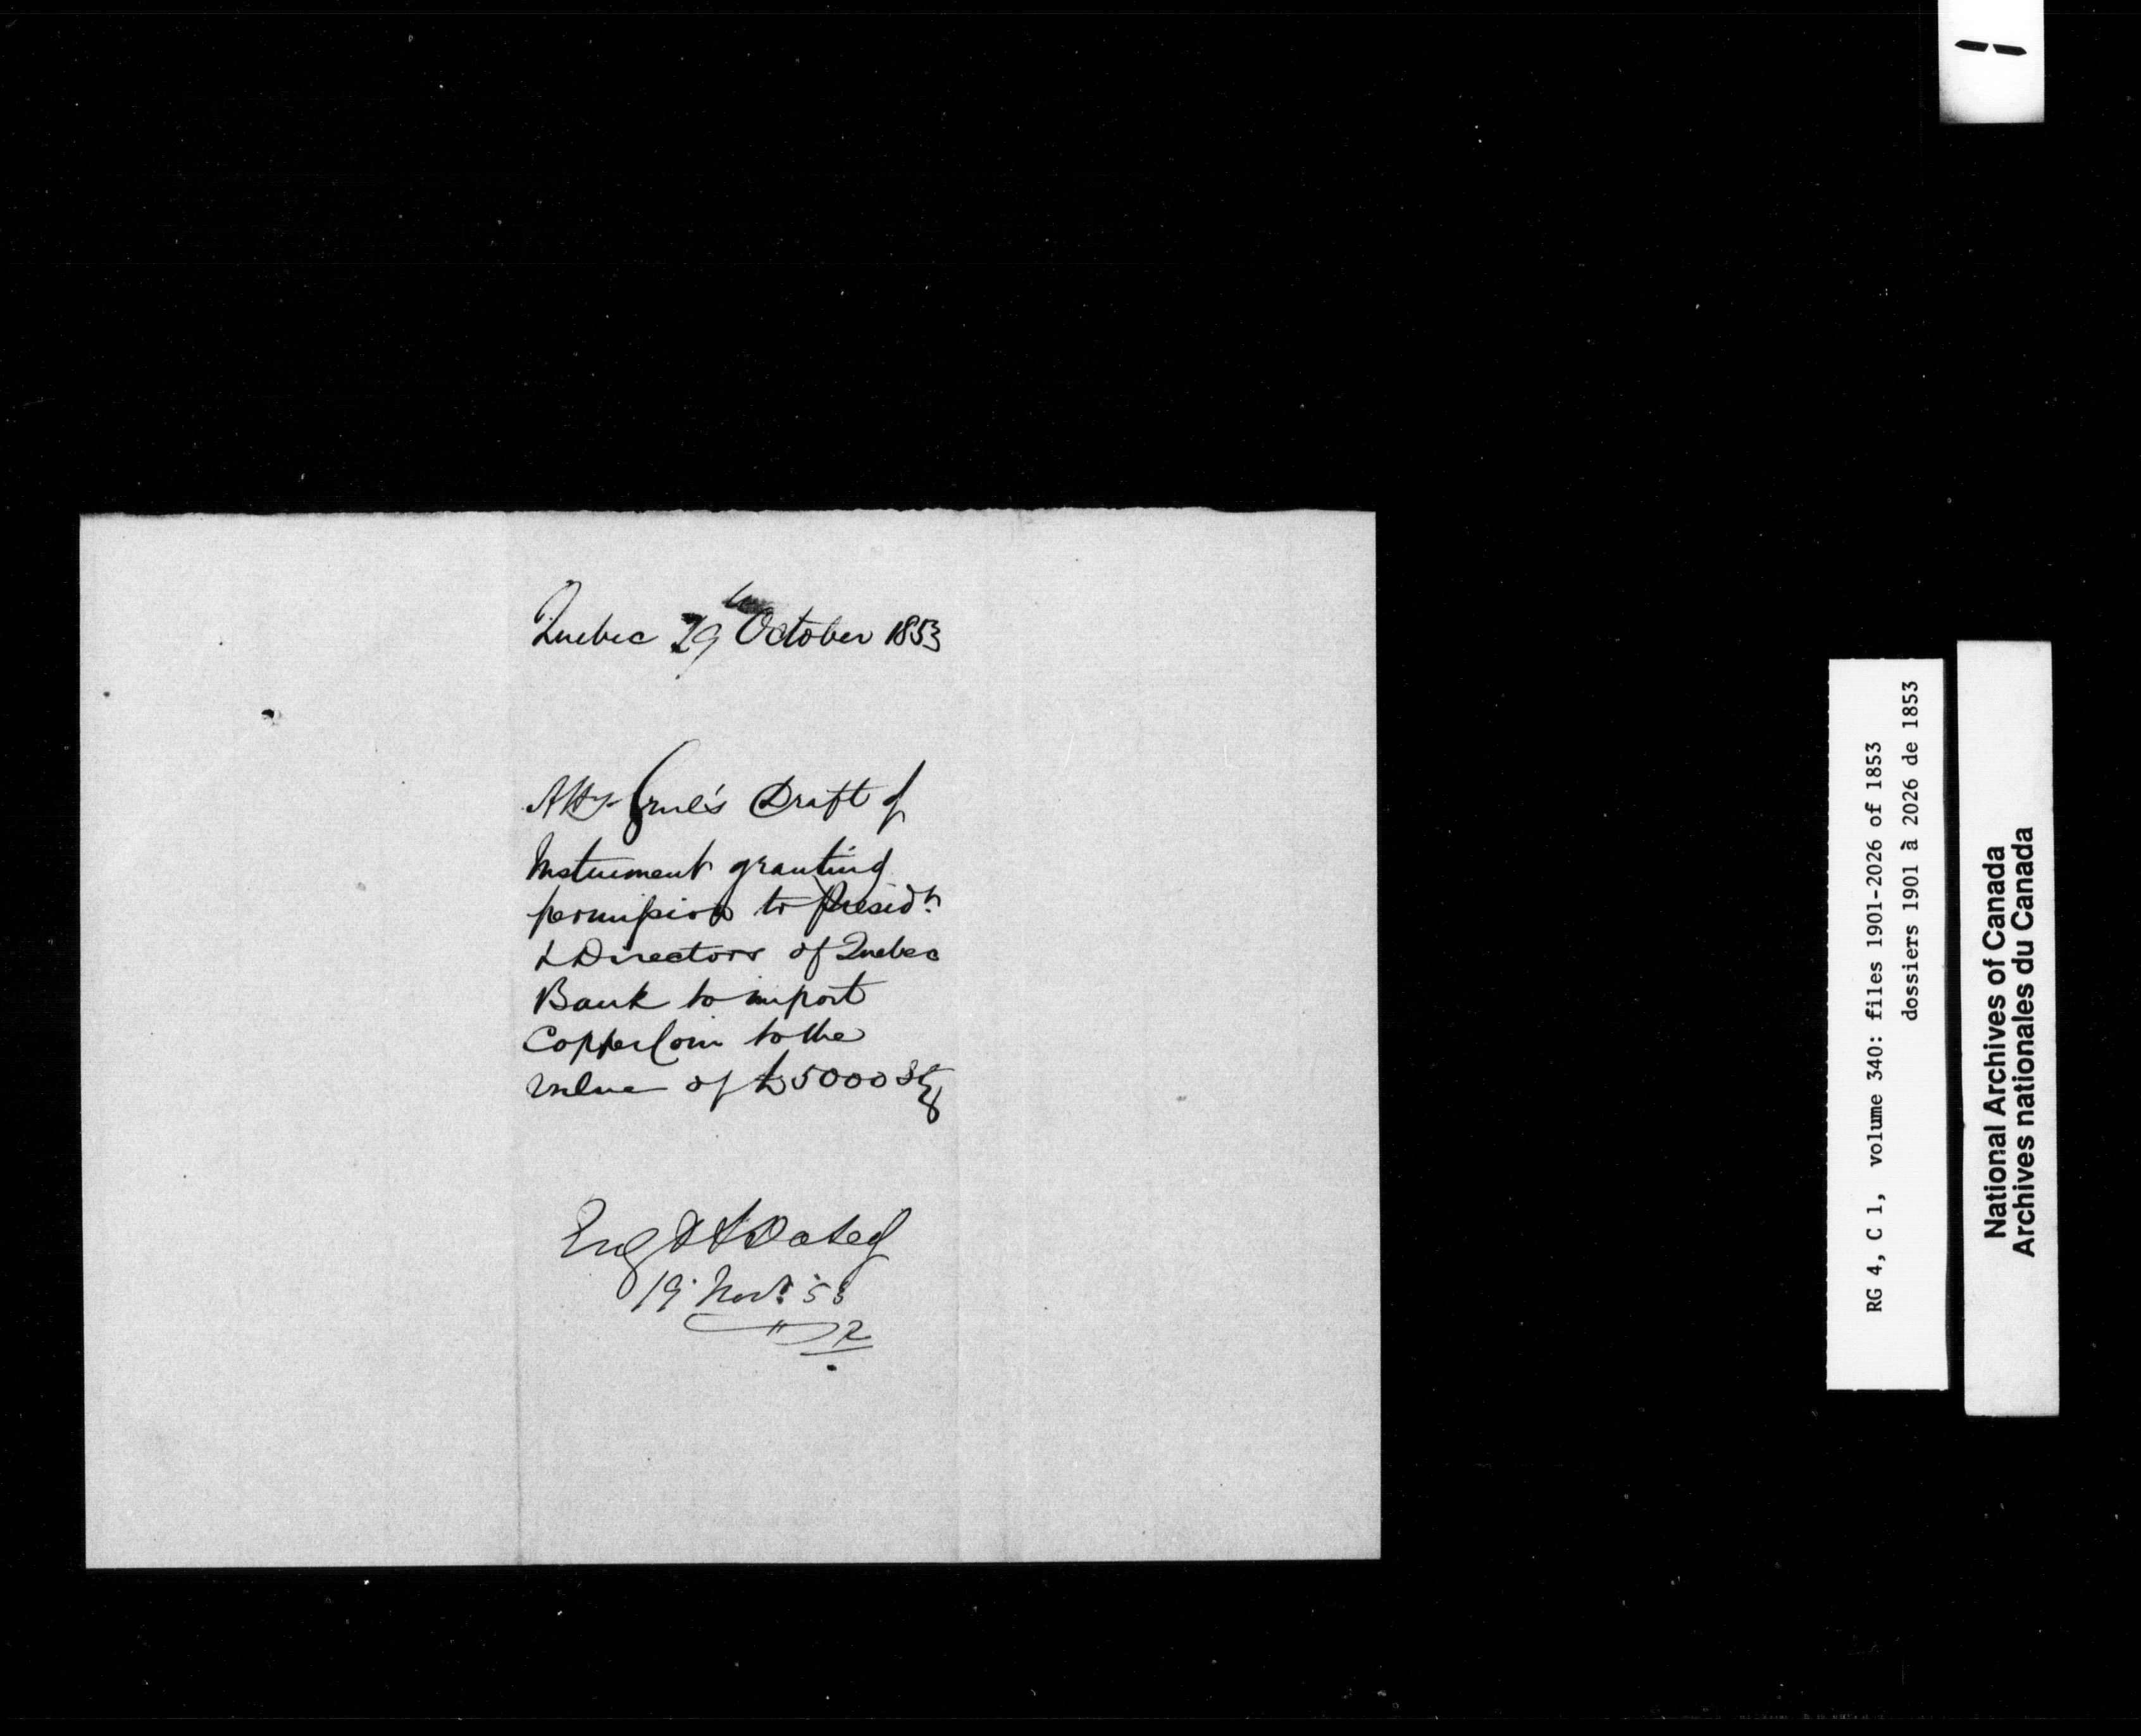 Quebec 29th October 1853
Atty Genl's Draft of
Instrument granting
permission to Presidt.
& Directors of Quebec
Bank to import
Copper Coin to the
value of £5000 Stg
Eng & Dated
19 Novr. 53
RG 4, C 1, volume 340: files 1901-2026 of 1853
dossiers 1901 à 2026 de 1853
National Archives of Canada
Archives nationales du Canada